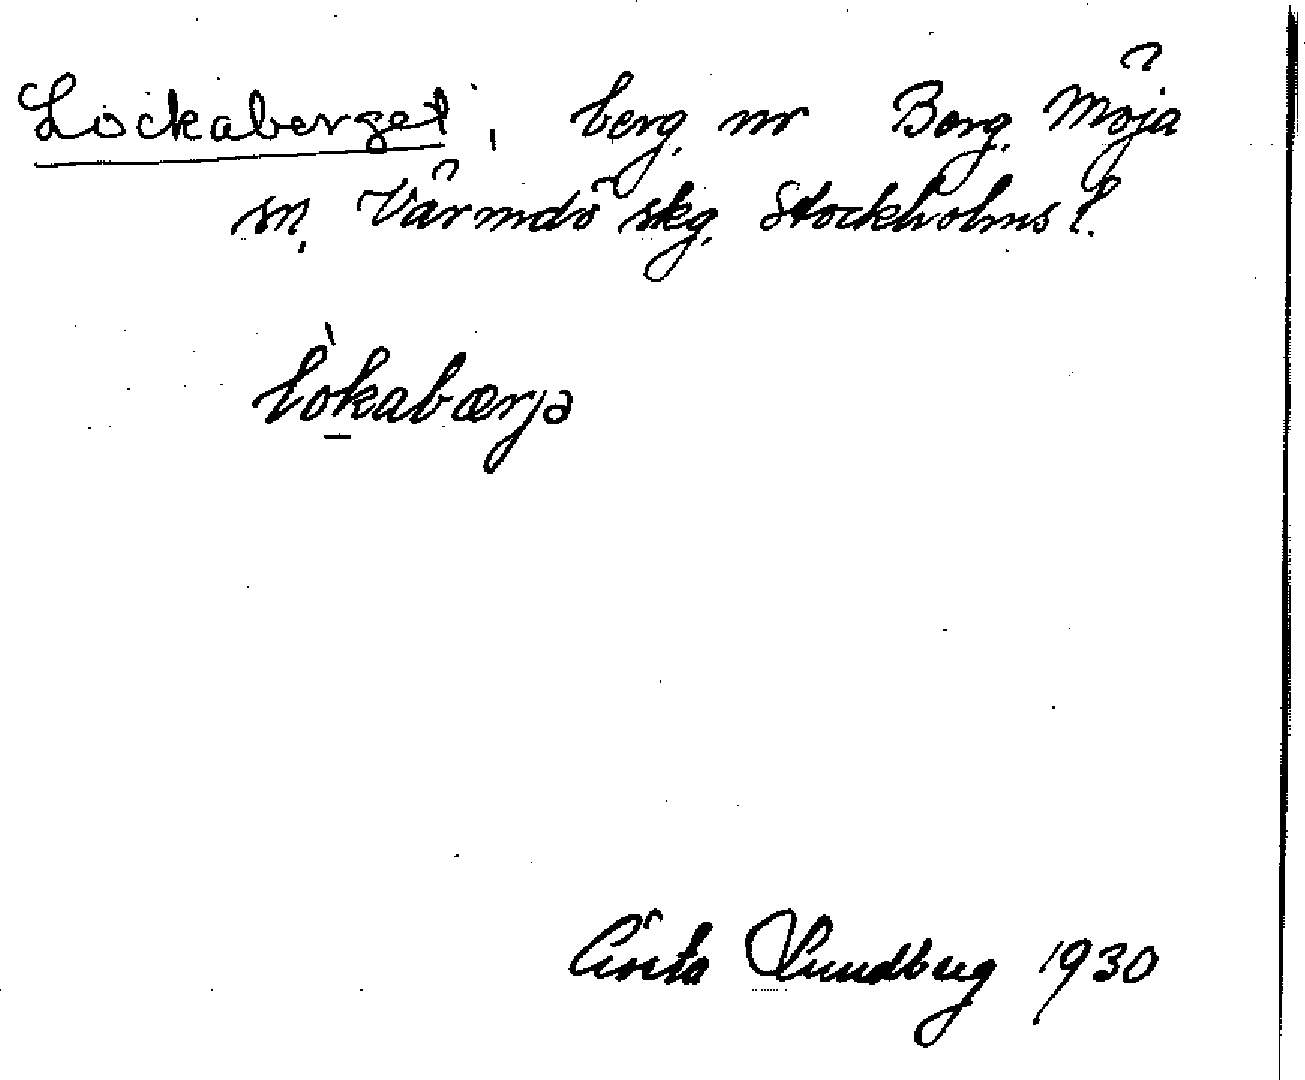 Lockaberget, berg, nr Berg, Möja
sn, Värmdö skg, Stockholms l.
lòkabærjə
Gösta Lundberg 1930